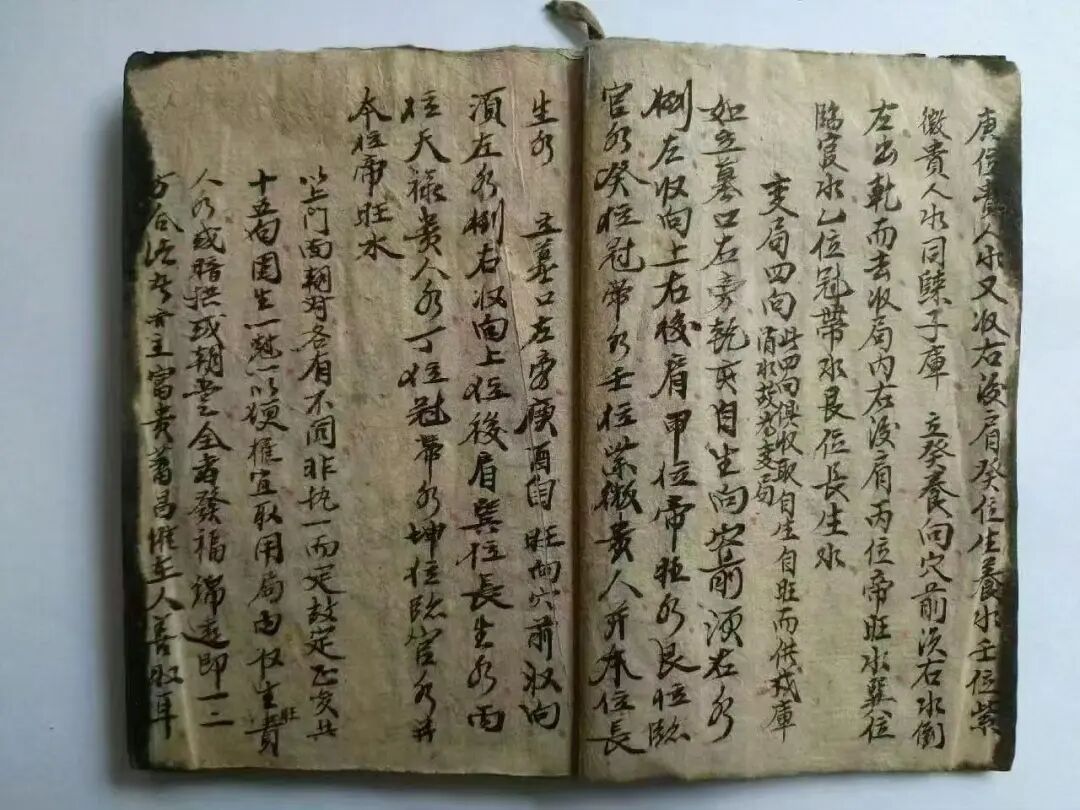 庚位貴人水又収右後肩癸位生養水壬位紫
徽貴人水同歸子庫　立癸養向穴前須右水倒
左出乾而去収局内左後肩丙位帝旺水巽位
臨官水乙位冠帶水艮位長生水
变局四向
此四向俱收取自生自旺而供戌庫
消水故为变局
如立墓口右旁乾亥自生向穴前須右水
倒左収向上右後肩甲位帝旺水艮位臨
官水癸位冠帶水壬位紫微貴人水并本位長
生水　立墓口左旁庚酉自旺向穴前収向
須左水倒右収向上位後肩巽位長生水丙
位天祿貴人水丁位冠帶水坤位臨官水并
本位帝旺水
以上門面朝对各有不同非执一而定故定正变共
十五向圍生一尅一以便權宜取用局内収生旺貴
人水或暗拱或朝堂全者發福綿遠即一二
方合法者亦主富貴蕃昌惟至人善取耳